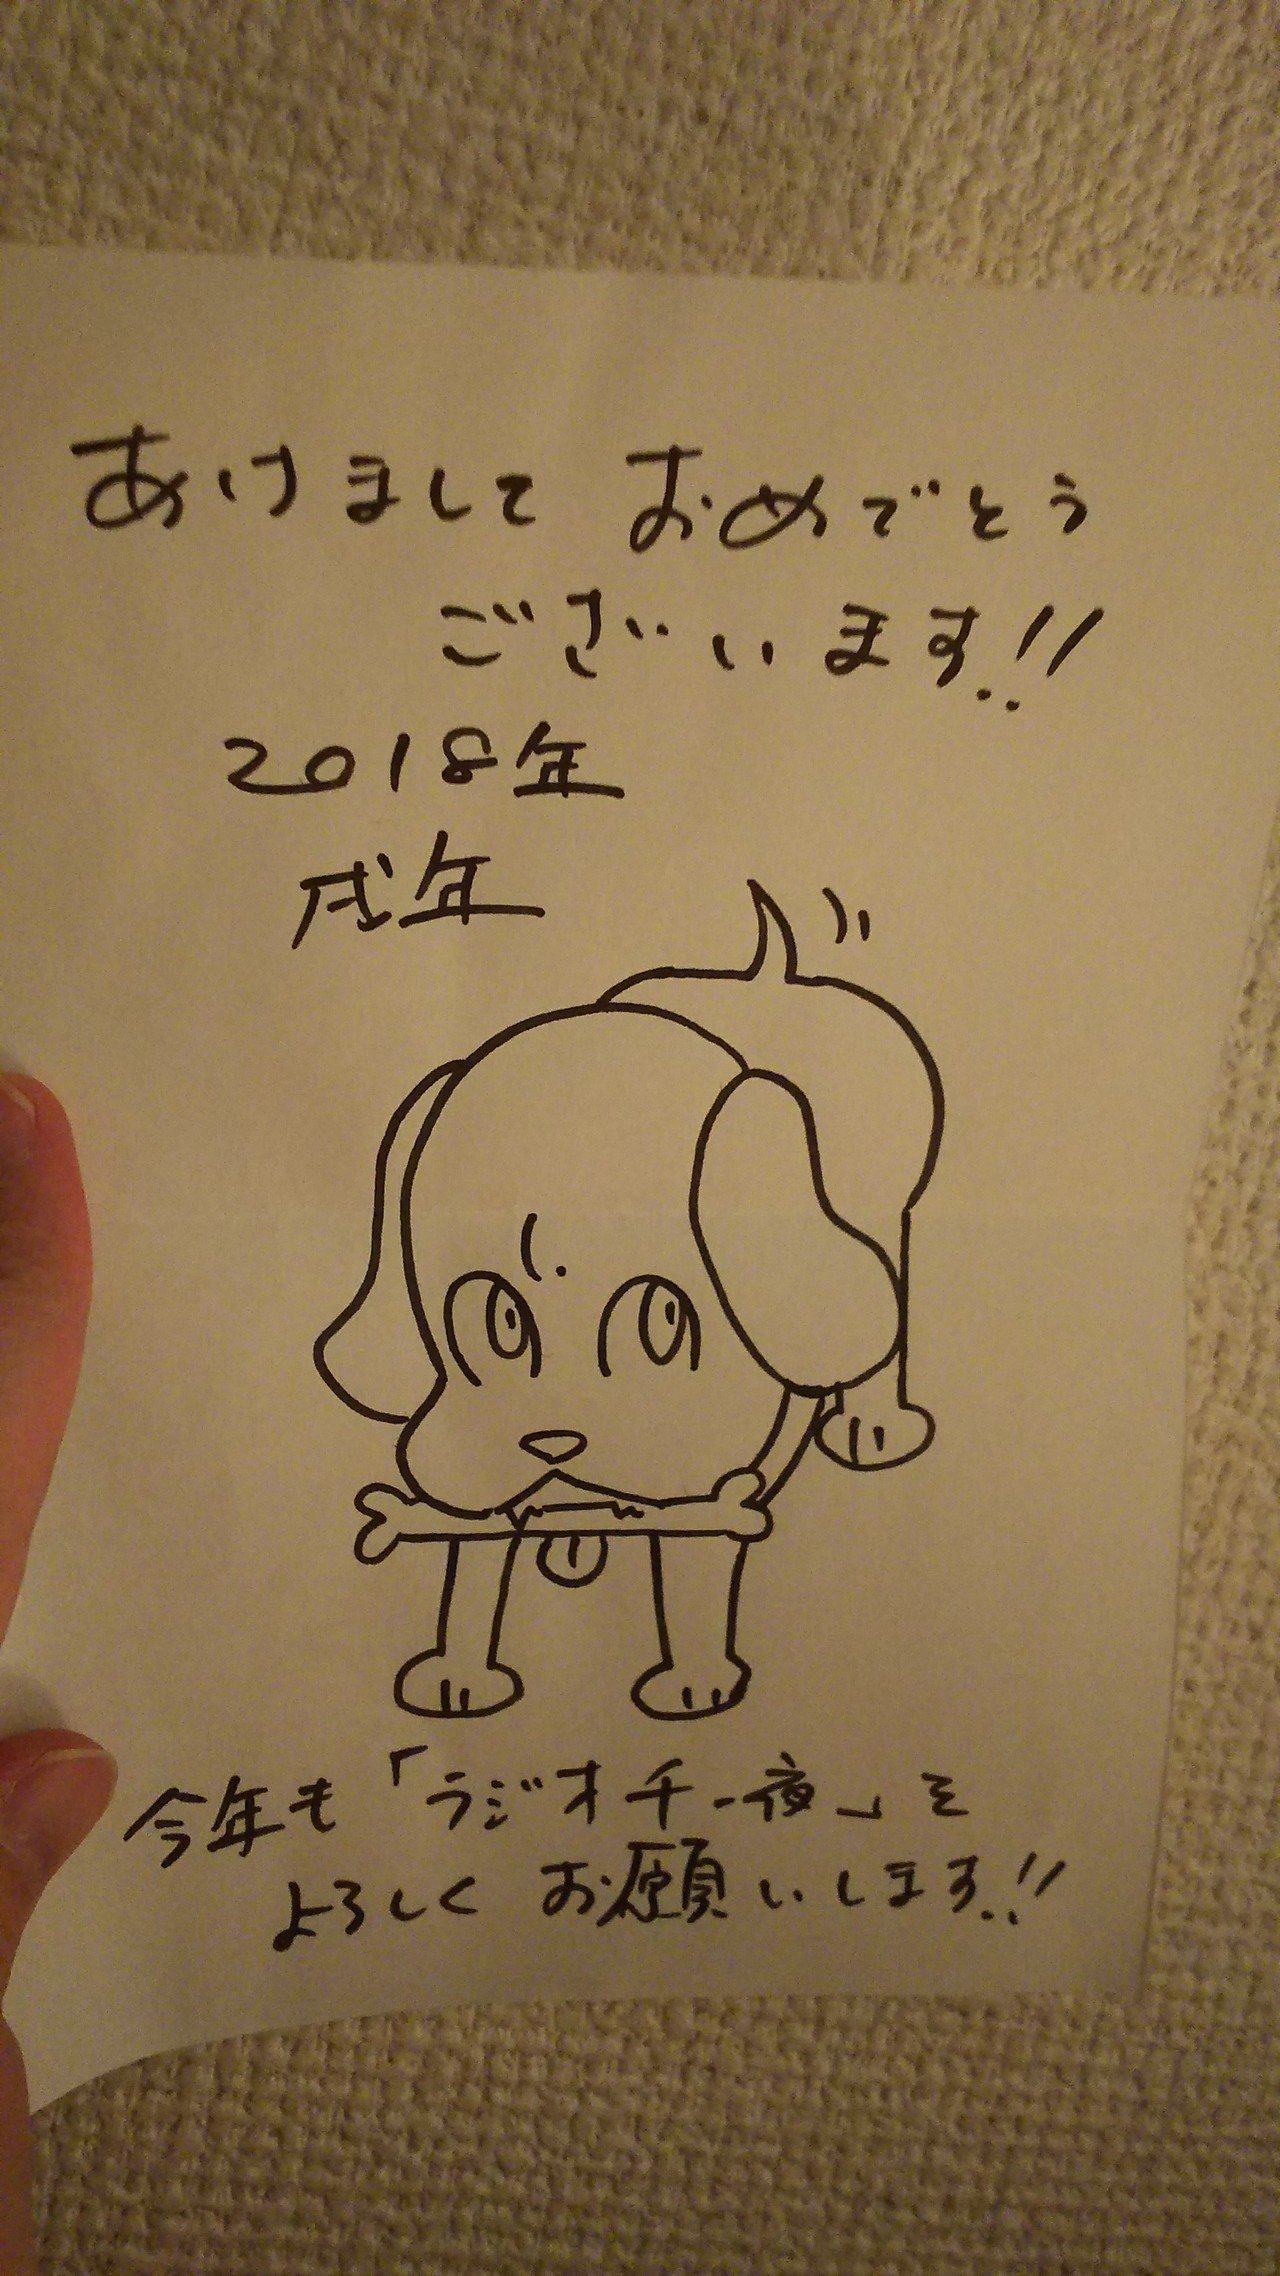 あけまして おめでとう
ございます!!
2018年
戌年
今年も「ラジオ千一夜」を
よろしく お願いします!!